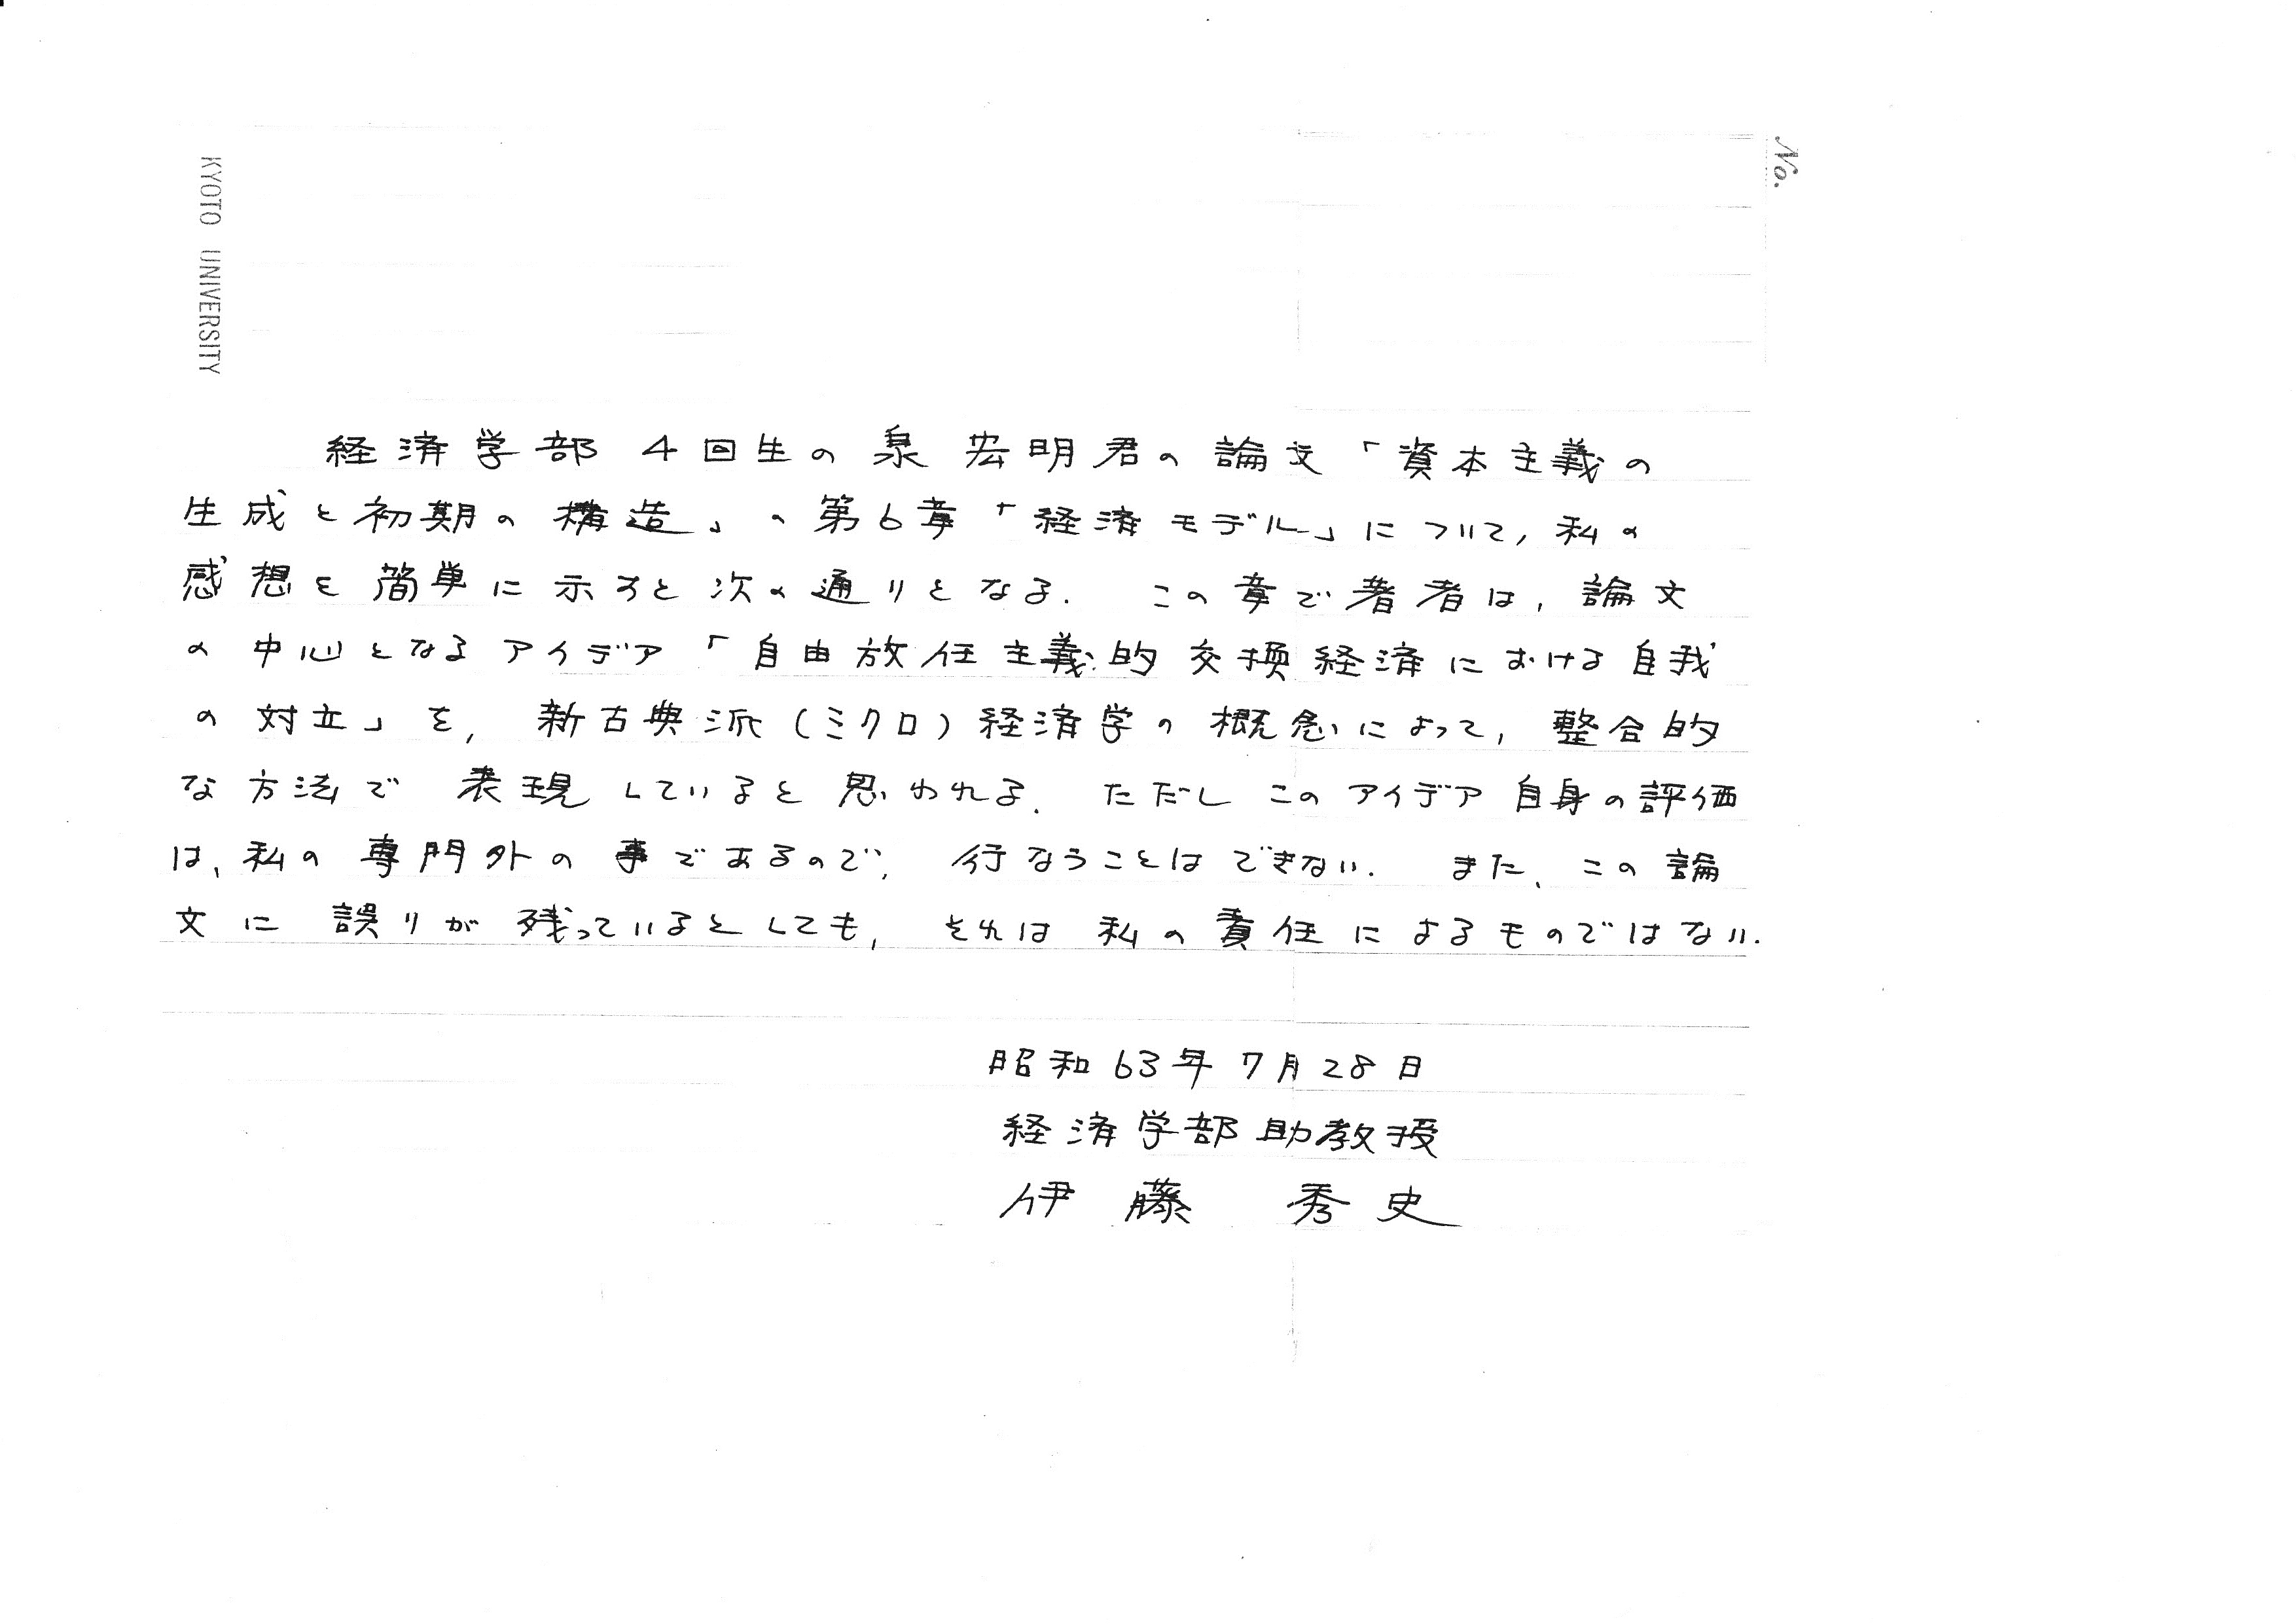 No.
KYOTO UNIVERSITY
経済学部4回生の泉 宏明君の論文「資本主義の
生成と初期の構造」の第6章「経済モデル」について, 私の
感想を簡単に示すと次の通りとなる. この章で著者は, 論文
の中心となるアイデア「自由放任主義的交換経済における自我
の対立」を, 新古典派(ミクロ)経済学の概念によって, 整合的
な方法で表現していると思われる. ただしこのアイデア自身の評価
は, 私の専門外の事であるので, 行なうことはできない. また, この論
文に誤りが残っているとしても, それは私の責任によるものではない.
昭和63年7月28日
経済学部助教授
伊藤 秀史